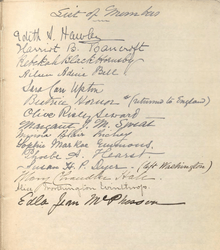 List of Members
Edith S. Hawley
Harriot B. Bancroft
Rebekah Black Hornsby
Helen Adair Bell
Sara Carr Upton
Beatrice Hornor (returned to England)
Clive Risley Seward
Margaret J. M. Sweat
Sophie Markoe Emmons
Phoebe A. Hearst
Susan H. P. Dyer (left Washington)
Mary Chandler Hale
Winthrop
Edla Jean McPherson